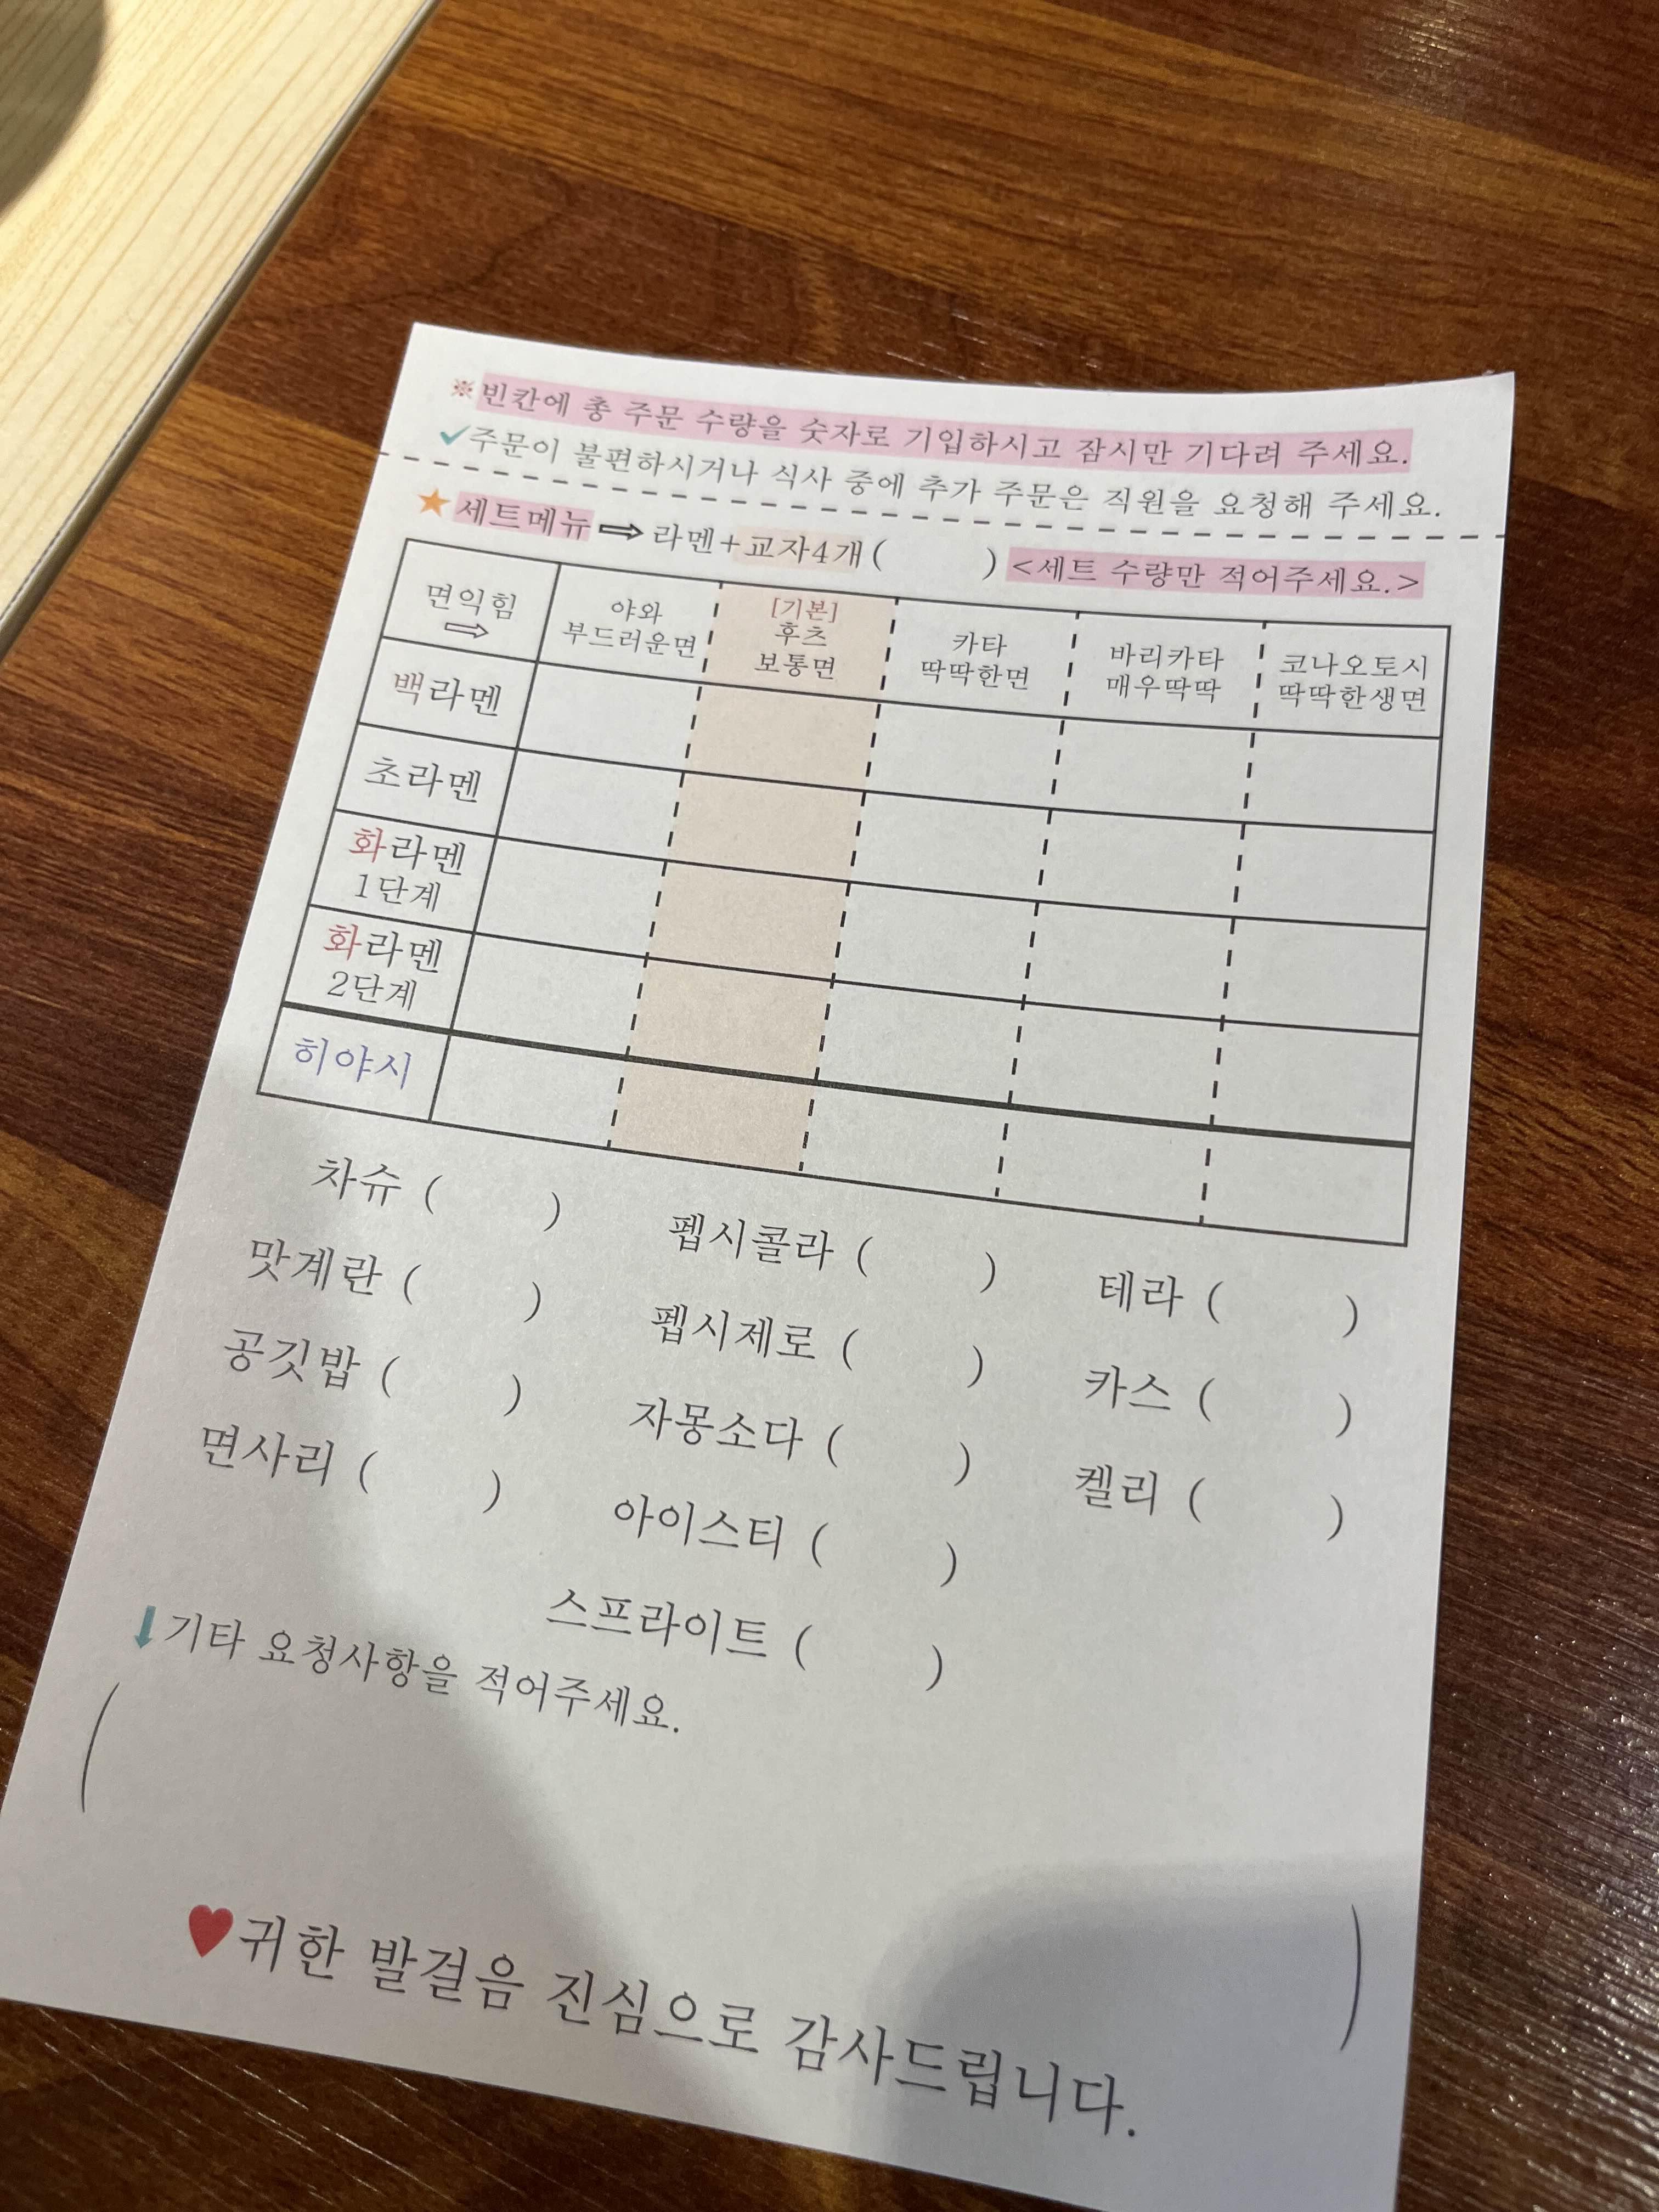 ※빈칸에 총 주문 수량을 숫자로 기입하시고 잠시만 기다려 주세요.
✓주문이 불편하시거나 식사 중에 추가 주문은 직원을 요청해 주세요.
★세트메뉴⇨라멘+교자4개( ) <세트 수량만 적어주세요.>
면익힘 ⇨
야와 부드러운면
[기본] 후츠 보통면
카타 딱딱한면
바리카타 매우딱딱
코나오토시 딱딱한생면
백라멘
초라멘
화라멘
1단계
화라멘
2단계
히야시
차슈 ( ) 펩시콜라 ( ) 테라 ( )
맛계란 ( ) 펩시제로 ( ) 카스 ( )
공깃밥 ( ) 자몽소다 ( ) 켈리 ( )
면사리 ( ) 아이스티 ( )
스프라이트 ( )
⬇기타 요청사항을 적어주세요.
( )
♥귀한 발걸음 진심으로 감사드립니다.